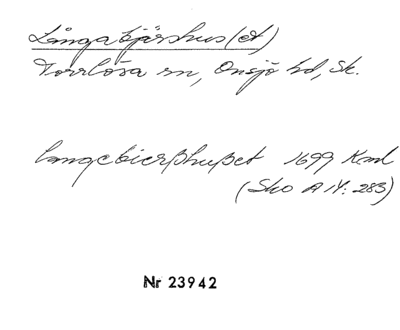 Långabjärshus(et)
Torrlösa sn, Onsjö hd, Sk.
langebierßhußet 1699 Kml
(Sko A IV: 283)
Nr 23942